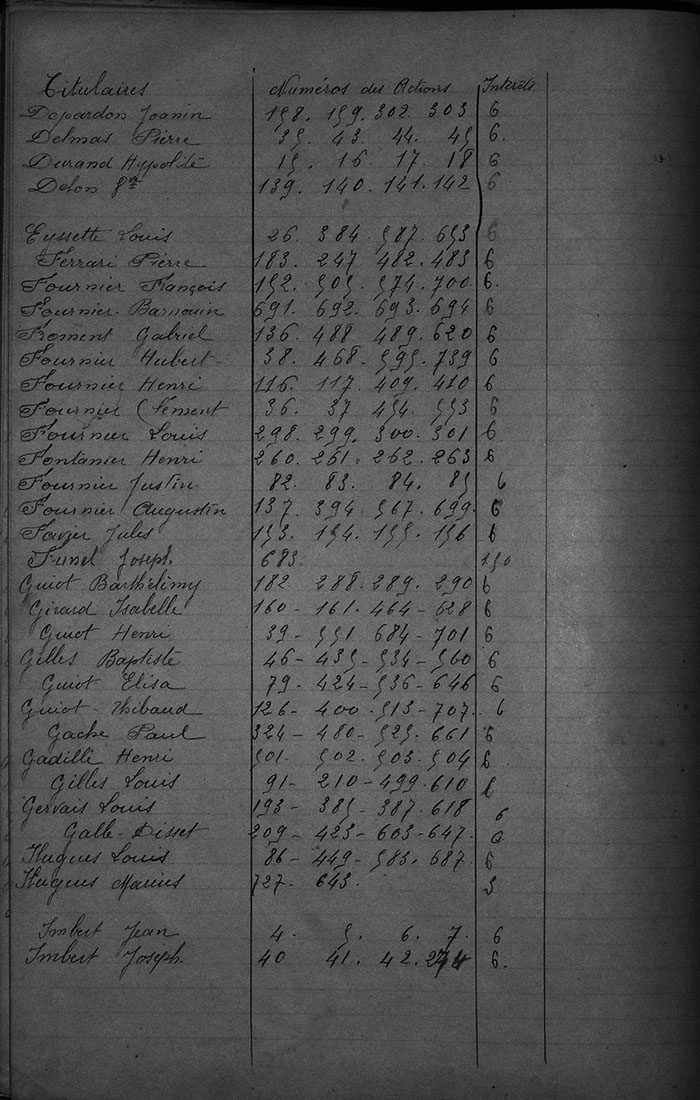 Titulaires Numéros des Actions Intérêts
Depardon Joanin 158. 159. 302. 303 6
Delmas Pierre 35. 43. 44. 45 6.
Durand Hypolite 15. 16. 17. 18 6
Delon fils 139. 140. 141. 142 6
Eyssette Louis 26. 384. 587. 653 6
Ferrari Pierre 183. 247 482. 483 6
Fournier François 152. 505. 574. 700. 6.
Fournier-Barnouin 691. 692. 693. 694 6
Froment Gabriel 136. 488 489. 620 6
Fournier Hubert- 38. 468- 595. 739 6
Fournier Henri 116. 117. 409. 410 6
Fournier Clément 36. 37 454. 553 6
Fournier Louis 298. 299. 300. 301 6
Fontanier Henri 260. 261. 262. 263 6
Fournier Justin. 82. 83. 84. 85 6
Fournier Augustin 137. 394. 567. 699. 6
Favier Jules 153. 154. 155. 156 6
Funel Joseph. 683. 1.50
Guiot Barthélimy 182 288. 289. 290 6
Girard Isabelle 160- 161. 464- 628 6
Guiot Henri 39- 551 684- 701 6
Gilles Baptiste 46- 435- 534- 560 6
Guiot Elisa 79. 424- 536- 646 6
Guiot-Thibaud 126- 400. 513- 707. 6
Gache Paul 324- 480- 525. 661 6
Gadille Henri 501. 502. 503. 504 6
Gilles Louis 91- 210- 499. 610 6
Gervais Louis 193- 385- 387. 618 6
Galle-Disset 209- 423- 603- 647. 6
Hugues Louis 86- 449- 583. 687. 6
Hugues Marius 727- 643. 3
Imbert Jean 4. 5. 6. 7. 6
Imbert Joseph. 40 41. 42. 6.